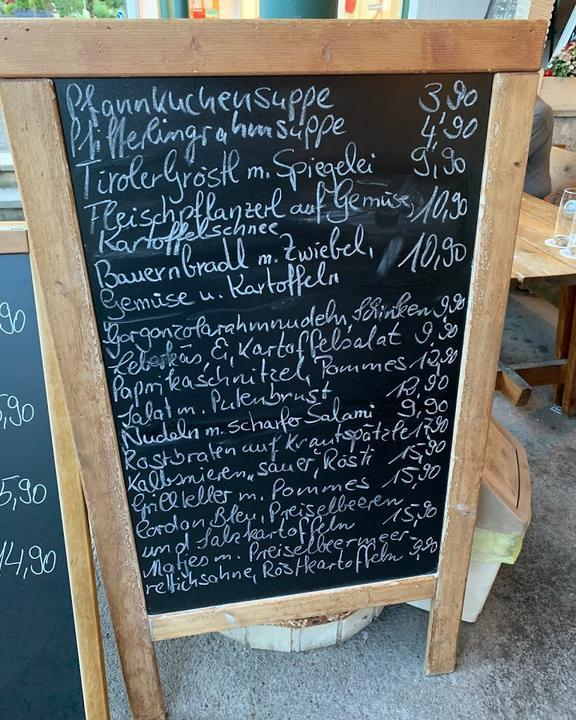 Pfannkuchensuppe 3,90
Pfifferlingrahmsuppe 4,90
Tiroler Gröstl m. Spiegelei 9,90
Fleischpflanzerl auf Gemüse, 10,90
Kartoffelschnee
Bauernbradl m. Zwiebel, 10,90
Gemüse u. Kartoffeln
Gorgonzolarahmnudeln, Schinken 9,90
Leberkäs, Ei, Kartoffelsalat 9,90
Paprikaschnitzel, Pommes 12,90
Salat m. Putenbrust 12,90
Nudeln m. scharfer Salami 9,90
Rostbraten auf Krautspätzle 17,90
Kalbsnieren „sauer, Rösti 15,90
Grillteller m. Pommes 15,90
Cordon Bleu, Preiselbeeren
und Salzkartoffeln 15,90
Matjes m. Preiselbeermeer-
rettichsahne, Röstkartoffeln 9,90
,90
5,90
5,90
14,90